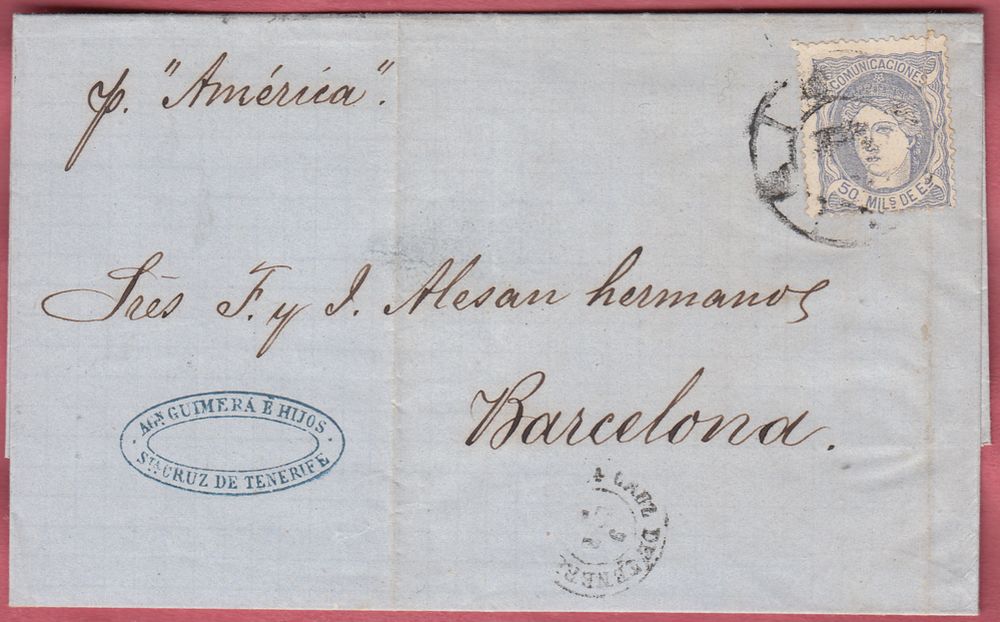 p. "América".
COMUNICACIONES
50. MILS DE ES
Sres F. y J. Alesan hermanos
Barcelona.
AGN. GUIMERÁ É HIJOS
STA. CRUZ DE TENERIFE
CRUZ DE TENERI